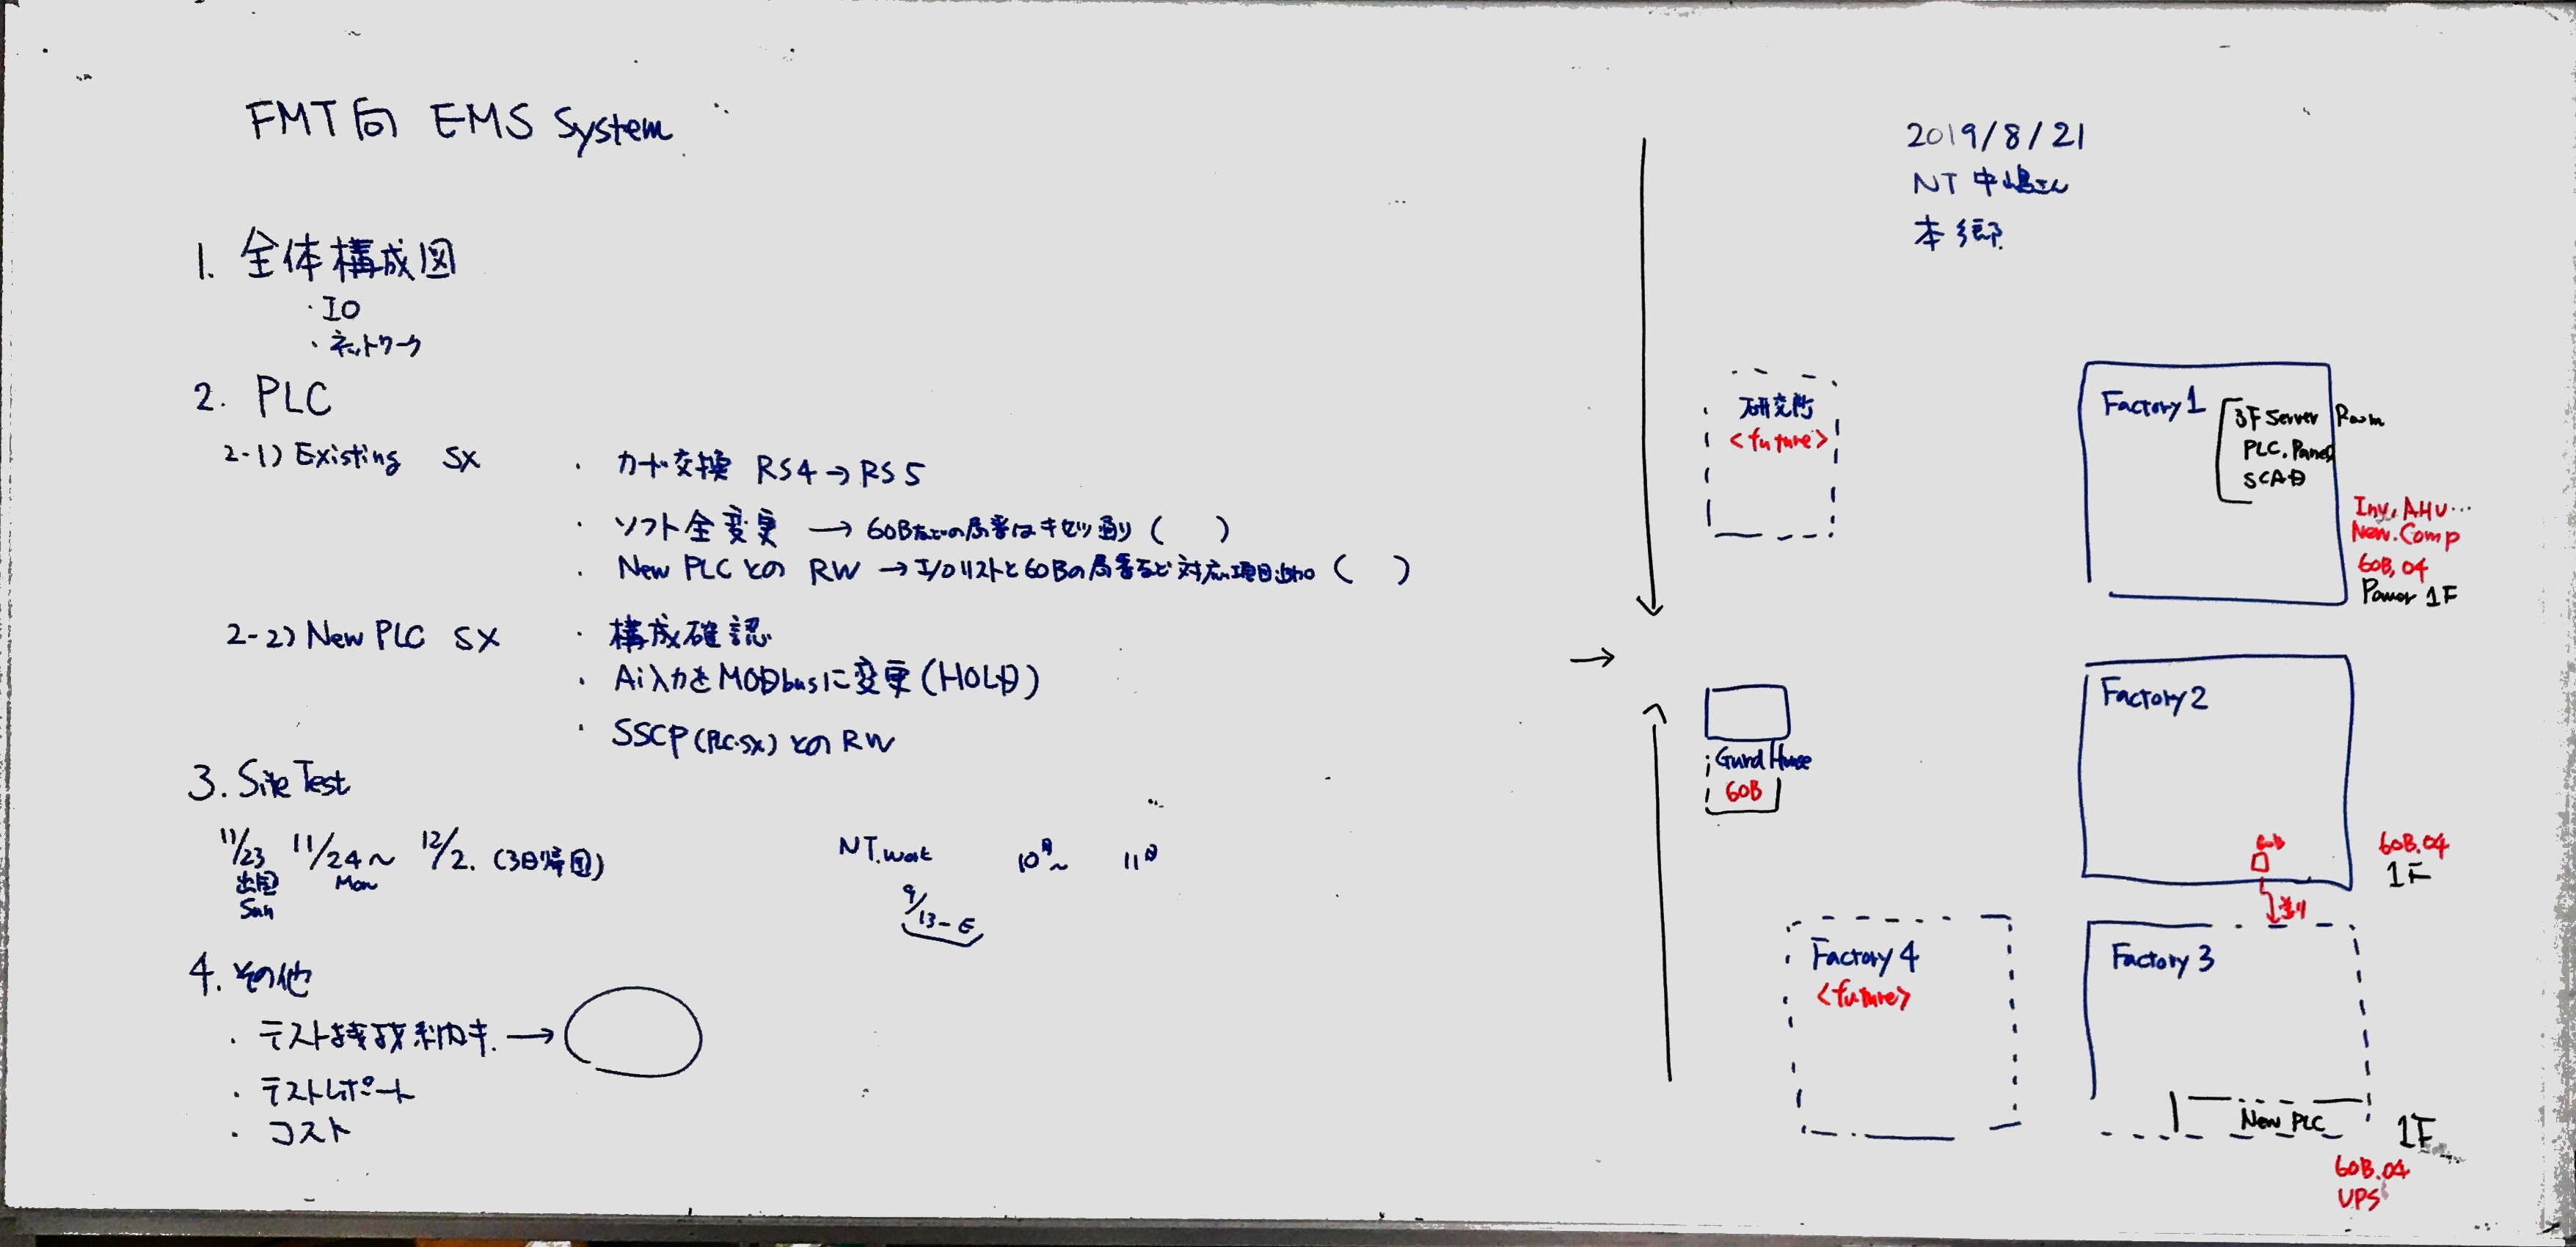 FMT向 EMS System
2019/8/21
NT 中嶋さん
本郷
1. 全体構成図
・IO
・ネットワーク
2. PLC
2-1) Existing SX
・カード交換 RS4→RS5
・ソフト全変更 → 60Bなどの局番はキセツ通り ( )
・New PLC との RW → I/Oリストと60Bの局番など対応項目追加 ( )
2-2) New PLC SX
・構成確認
・Ai入力をMODbusに変更(HOLD)
・SSCP(PLC.SX)とのRW
3. Site Test
11/23 11/24~ 12/2. (3日帰国)
出国 Mon
Sun
NT.work 10月~ 11月
9/13-E
4. その他
・テスト
・テストレポート
・コスト
研究所
<future>
Factory 1
3F Server Room
PLC.Panel
SCAD
Inv, AHU…
New.Comp
60B,04
Power 1F
Gurd House
60B
Factory 2
60B
60B.04
1F
Factory 4
<future>
Factory 3
New PLC
1F
60B.04
UPS